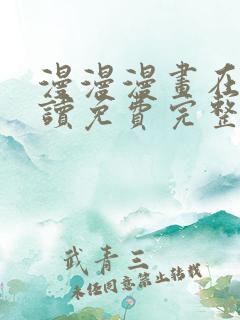 漫漫漫畫在
讀免費完整
武青三
未經同意禁止轉載